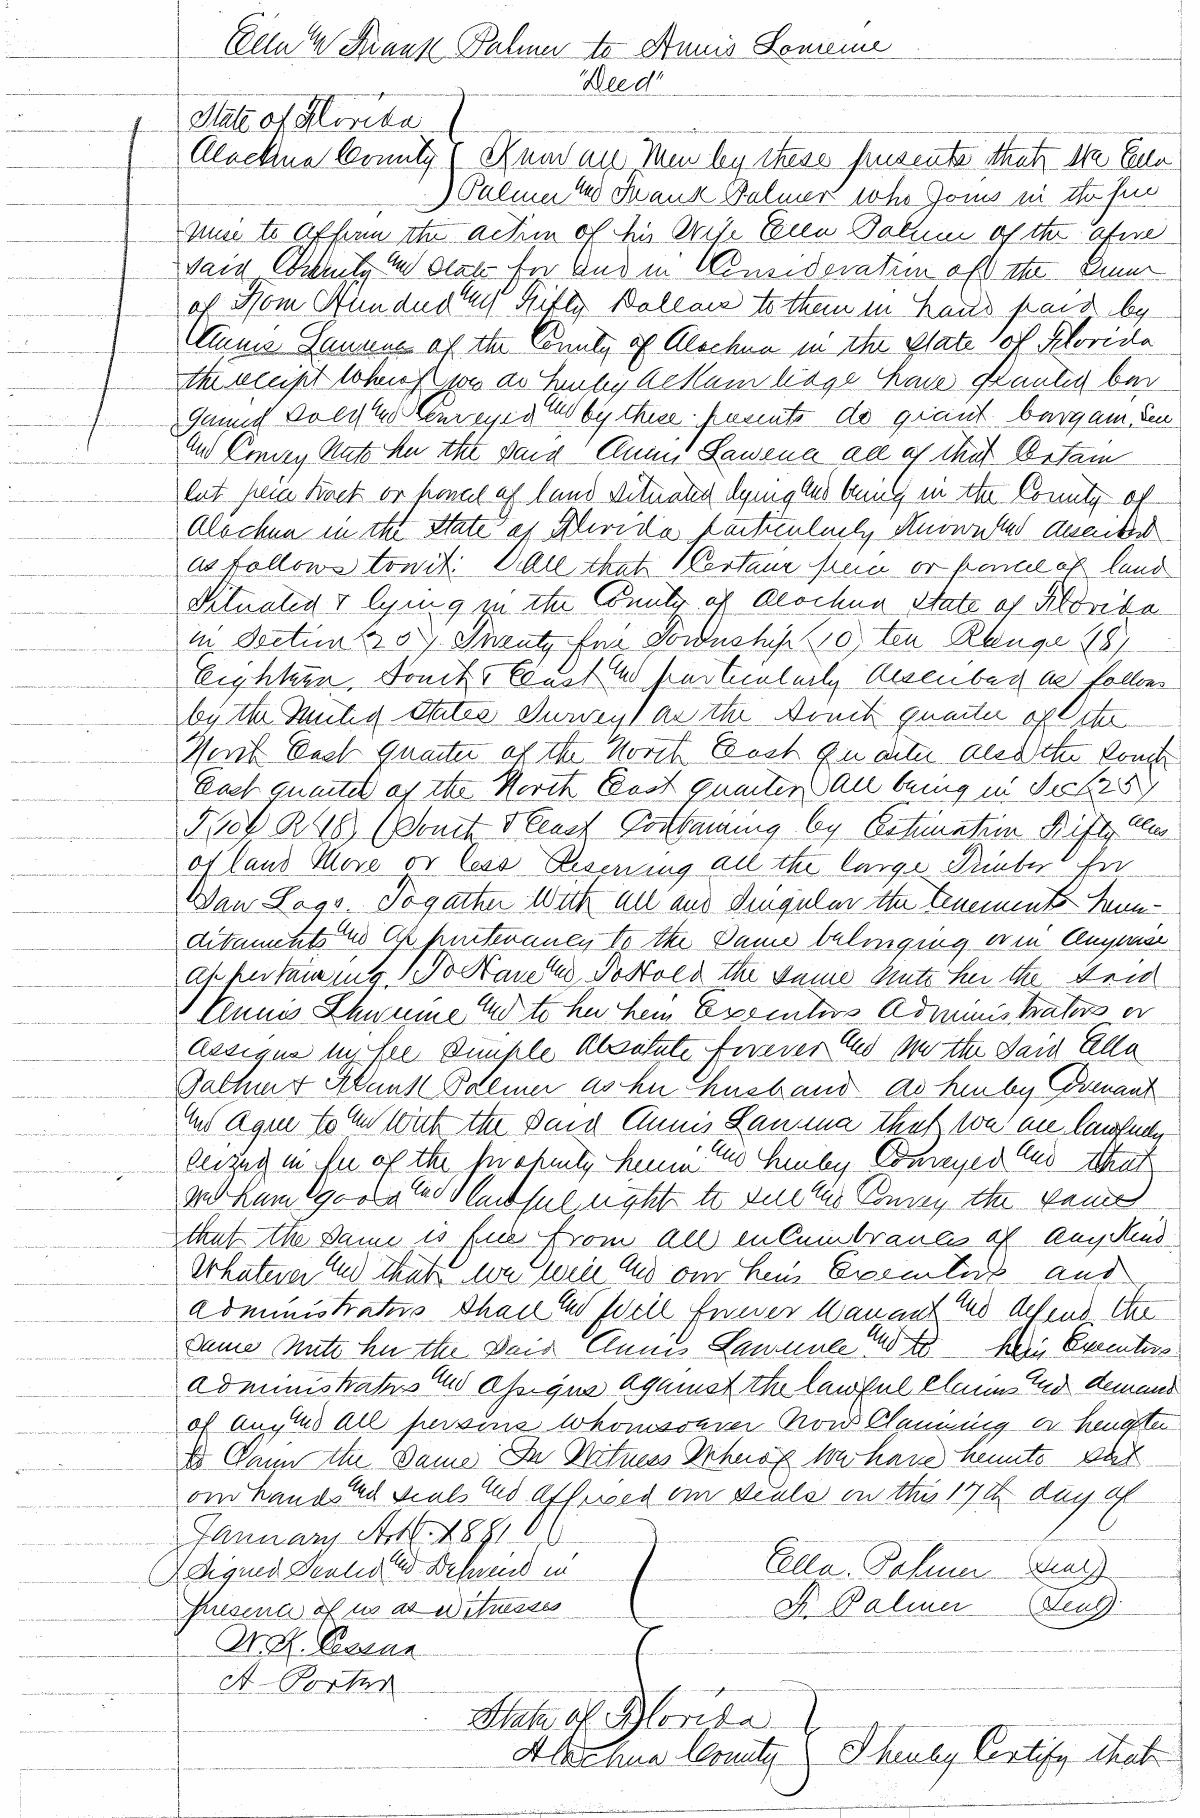 Ella and Frank Palmer to Annis Lorreine
"Deed"
State of Florida
Alachua County Know all Men by these presents that We Ella
Palmer and Frank Palmer who Joins in the pre
mise to affirm the action of his Wife Ella Palmer of the afore
said County and State for and in Consideration of the Sum
of Hundred and Fifty Dollars to them in hand paid by
Annis Laurena of the County of Alachua in the State of Florida
the receipt Whereof we do hereby acknowledge have granted bar
gained Sold and Conveyed and by these presents do grant bargain, Sell
and Convey unto her the said Annis Lawrence all of that Certain
Lot peice tract or parcel of land situated lying and being in the County of
Alachua in the State of Florida particularly Known and described
as follows towit: All that Certain peice or parcel of land
Situated & lying in the County of Alachua State of Florida
in Section (25) Twenty five Township (10) ten Range (18)
Eighteen, South & East and particularly described as follows
by the United States Survey as the South quarter of the
North East quarter of the North East quarter also the South
East quarter of the North East quarter, All being in Sec (25)
T(10) R(18) (South & East Containing by Estimation Fifty acres
of land More or less Reserving all the large Timber for
Saw Logs. Togather With all and Singular the tenements here-
ditaments and appurtenancy to the Same belonging or in Anywise
appertaining. To Have and To Hold the same unto her the said
Annis Lawreine and to her heirs Executors Administrators or
Assigns in fee Simple Absolute forever and We the Said Ella
Palmer & Frank Palmer as her husband do hereby Covenant
and agree to and With the said Annis Lawrena that We are lawfully
seized in fee of the property herein and hereby Conveyed and that
we have good and lawful right to sell and Convey the same
that the Same is free from all enCumbrances of any Kind
Whatever and that we will and our heirs Executors and
administrators Shall and Will forever Warrant and defend the
same unto her the said Annis Lawrence and to heirs Executors
administrators and assigns against the lawful Claims and demand
of any and all persons whomsoever Now Claiming or hereafter
to Claim the Same In Witness Whereof We have hereunto set
our hands and seals and affixed our seals on this 17th day of
January A.D. 1881
Signed Sealed and Delivered in Ella. Palmer (Seal)
presence of us as witnesses F. Palmer (Seal)
W. K. Cessna
A Porter
State of Florida
Alachua County I hereby Certify that